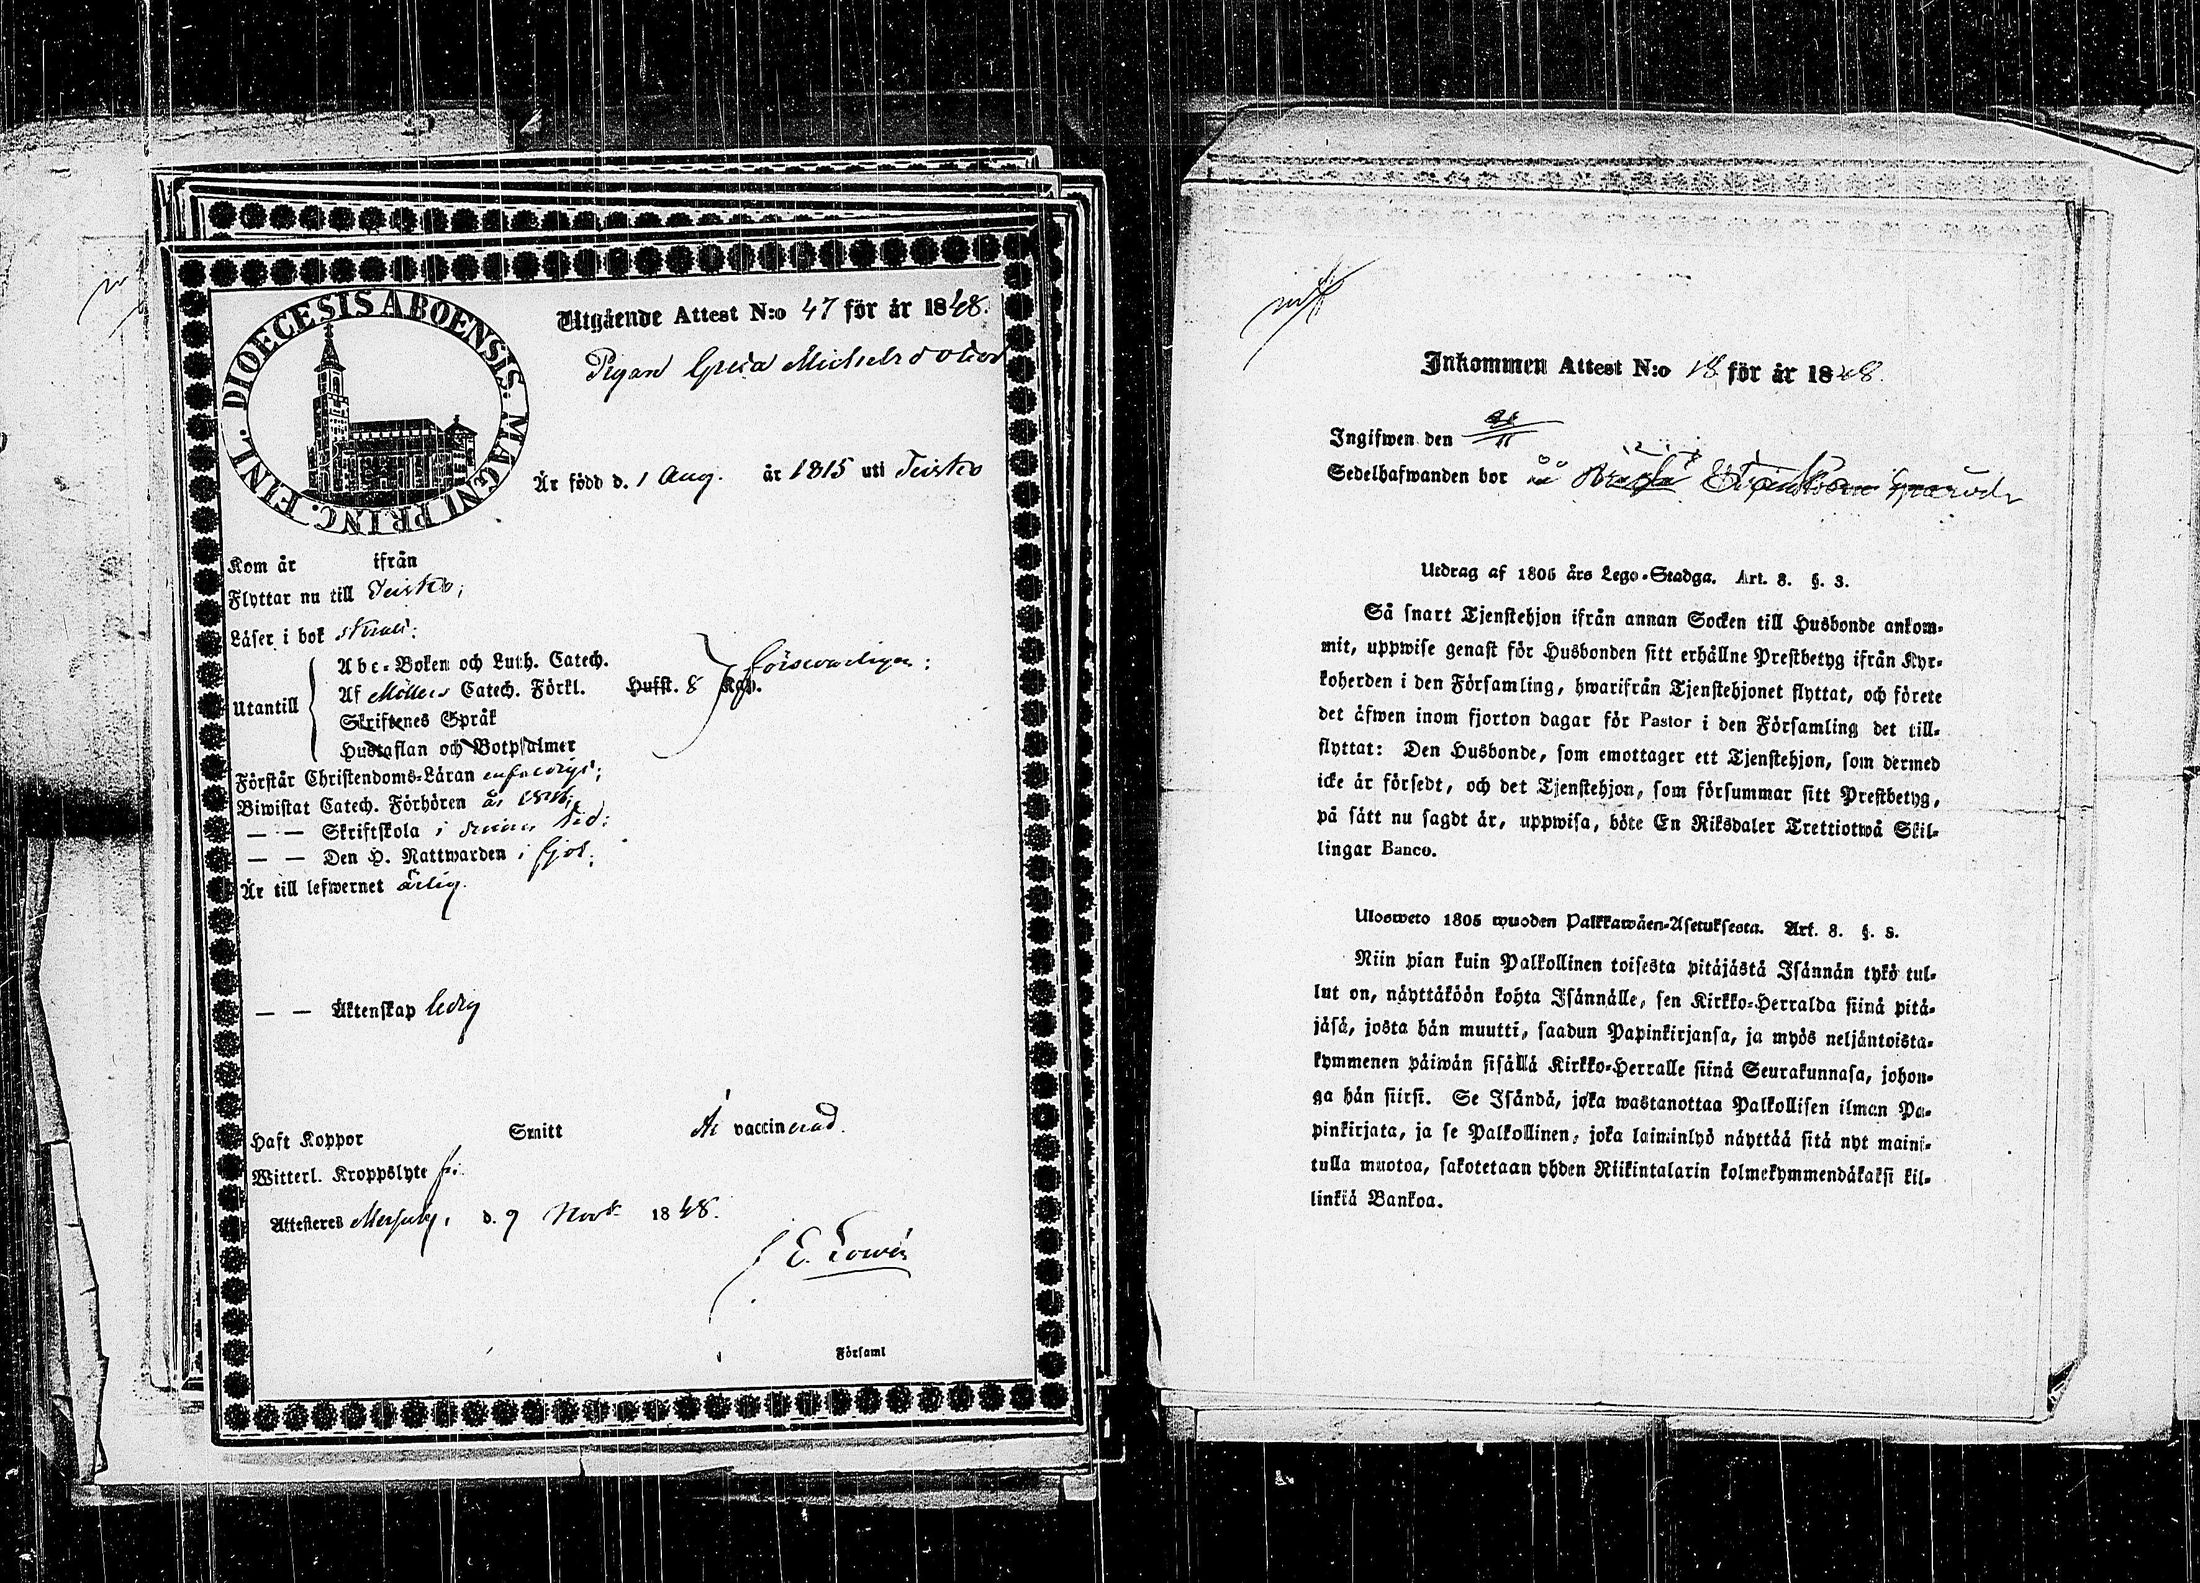 DIOECESIS ABOENSIS. MAGNI PRINC. FINL.
Utgående Attest N:o 47 för år 1848.
Pigan Greta Michelsdotter
Är född d. 1 Aug. år 1815 uti Teisko
Kom år ifrån
Flyttar nu till Teisko;
Läser i bok
Utantill
Abc-Boken och Luth. Catech.
Af Möllers Catech. Förkl. Husst. 8 Kap.
Skriftenes Språk
Hustaflan och Botpsalmer
försvarligen;
Förstår Christendoms-Läran enfaldigt;
Biwistat Catech. Förhören år
— — Skriftskola i sinom tid;
— — Den H. Nattwarden i fjol;
Är till lefwernet ärlig.
— — Äktenskap ledig
Haft Koppor Smitt Är vaccinerad.
Witterl. Kroppslyte fri.
Attesteres Messuby, d. 9 Nov. 1848.
E. Lowén
Församl
Inkommen Attest N:o 18 för år 1848.
Ingifwen den
Sedelhafwanden bor
Utdrag af 1805 års Lego-Stadga. Art. 8. §. 3.
Så snart Tjenstehjon ifrån annan Socken till Husbonde ankom-
mit, uppwise genast för Husbonden sitt erhållne Prestbetyg ifrån Kyr-
koherden i den Församling, hwarifrån Tjenstehjonet flyttat, och förete
det äfwen inom fjorton dagar för Pastor i den Församling det till-
flyttat: Den Husbonde, som emottager ett Tjenstehjon, som dermed
icke är försedt, och det Tjenstehjon, som försummar sitt Prestbetyg,
på sätt nu sagdt är, uppwisa, böte En Riksdaler Trettiotwå Skil-
lingar Banco.
Ulosweto 1805 wuoden Palkkawäen-Asetuksesta. Art. 8. §. 3.
Niin pian kuin Palkollinen toisesta pitäjästä Isännän tykö tul-
lut on, näyttäköön kohta Isännälle, sen Kirkko-Herralda siinä pitä-
jäsä, josta hän muutti, saadun Papinkirjansa, ja myös neljäntoista-
kymmenen päiwän sisällä Kirkko-Herralle siinä Seurakunnasa, johon-
ga hän siirsi. Se Isändä, joka wastanottaa Palkollisen ilman Pa-
pinkirjata, ja se Palkollinen, joka laiminlyö näyttää sitä nyt maini-
tulla muotoa, sakotetaan yhden Riikintalarin kolmekymmendäkaksi kil-
linkiä Bankoa.